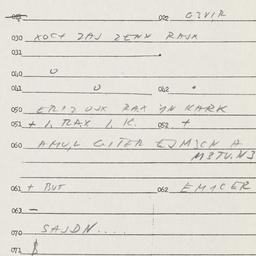 021 022 OZVIR
030 XOCT ZAJ ZENV RAJK
031
040
041 042
050 ERIZ UJK RAX IN KARK
051 + 1. RAX 1. K. 052 +
060 AMUL GITER EJMICN A
MBTU.NS
061 + BUT 062 EMACER
063 —
070 SAJDN....
071